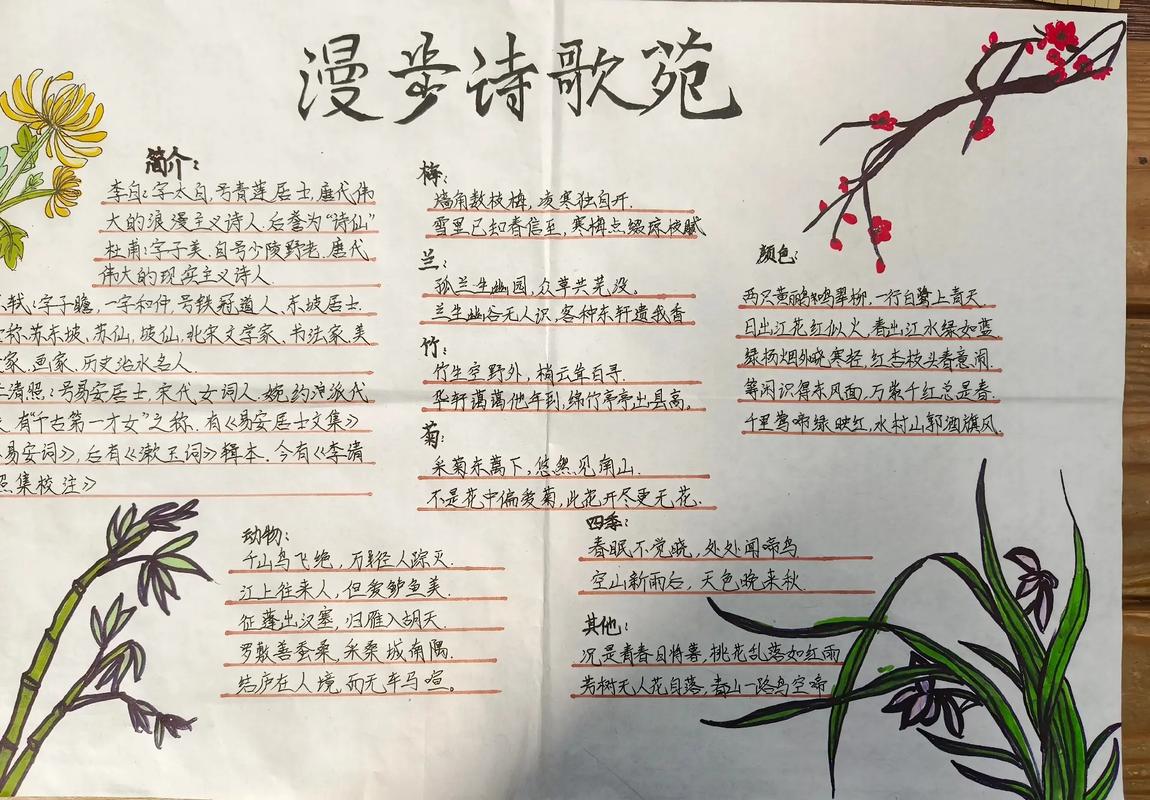 漫步诗歌苑
简介:
李白:字太白,号青莲居士,唐代伟
大的浪漫主义诗人.后誉为“诗仙”
杜甫:字子美.自号少陵野老.唐代
伟大的现实主义诗人.
轼:字子瞻,一字和仲,号铁冠道人、东坡居士.
称苏东坡、苏仙,坡仙,北宋文学家、书法家、美
家、画家、历史治水名人.
清照:号易安居士,宋代女词人.婉约派代
有“千古第一才女”之称.有《易安居士文集》
易安词》,后有《漱玉词》辑本.今有《李清
照集校注》
梅:
墙角数枝梅,凌寒独自开.
雪里已知春信至,寒梅点缀琼枝腻
兰:
孤兰生幽园,众草共芜没。
兰生幽谷无人识,客种东轩遗我香
竹:
竹生空野外,梢云耸百寻.
华轩蔼蔼他年到,绵竹亭亭出县高。
菊:
采菊东篱下,悠然见南山.
不是花中偏爱菊,此花开尽更无花.
颜色:
两只黄鹂鸣翠柳,一行白鹭上青天.
日出江花红似火,春出江水绿如蓝
绿杨烟外晓寒轻,红杏枝头春意闹.
等闲识得东风面,万紫千红总是春.
千里莺啼绿映红,水村山郭酒旗风.
动物:
千山鸟飞绝,万径人踪灭.
江上往来人,但爱鲈鱼美.
征蓬出汉塞,归雁入胡天.
罗敷善蚕桑,采桑城南隅.
结庐在人境,而无车马喧。
四季:
春眠不觉晓,处处闻啼鸟
空山新雨后,天色晚来秋.
其他:
况是青春日将暮,桃花乱落如红雨
芳树无人花自落,春山一路鸟空啼